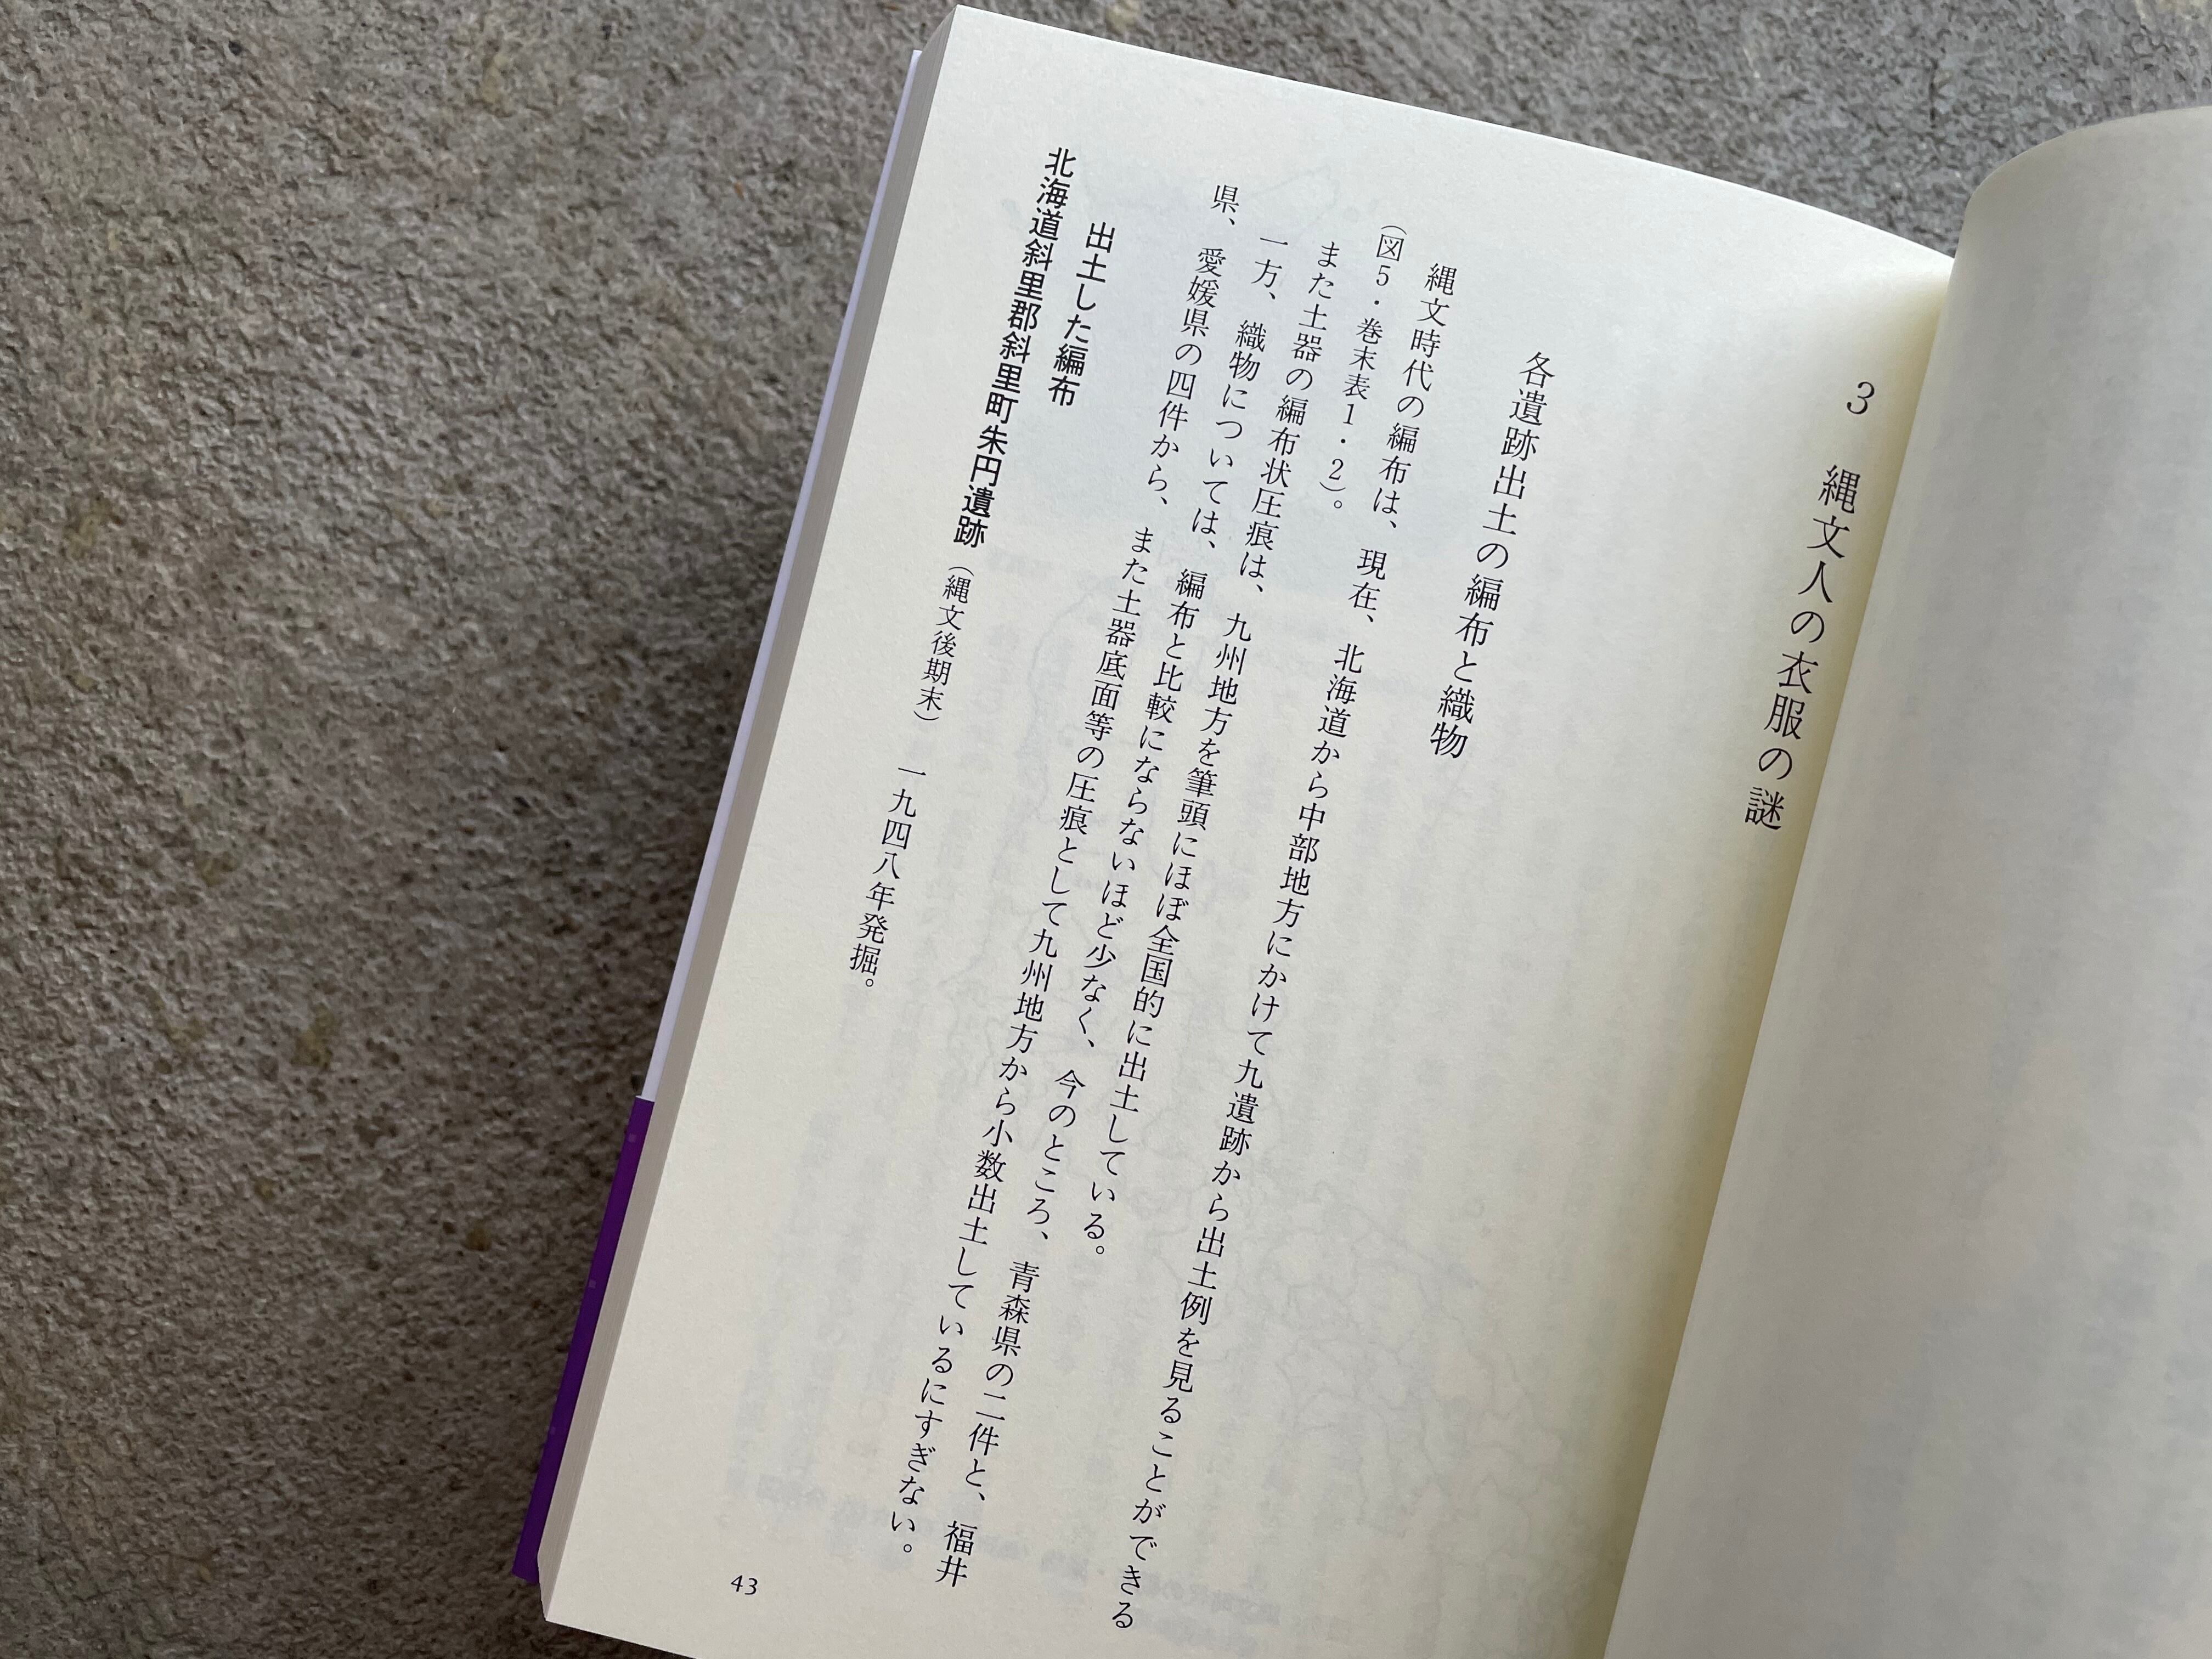 3 縄文人の衣服の謎
各遺跡出土の編布と織物
縄文時代の編布は、現在、北海道から中部地方にかけて九遺跡から出土例を見ることができる
（図5・巻末表1・2）。
また土器の編布状圧痕は、九州地方を筆頭にほぼ全国的に出土している。
一方、織物については、編布と比較にならないほど少なく、今のところ、青森県の二件と、福井
県、愛媛県の四件から、また土器底面等の圧痕として九州地方から小数出土しているにすぎない。
出土した編布
北海道斜里郡斜里町朱円遺跡（縄文後期末） 一九四八年発掘。
43